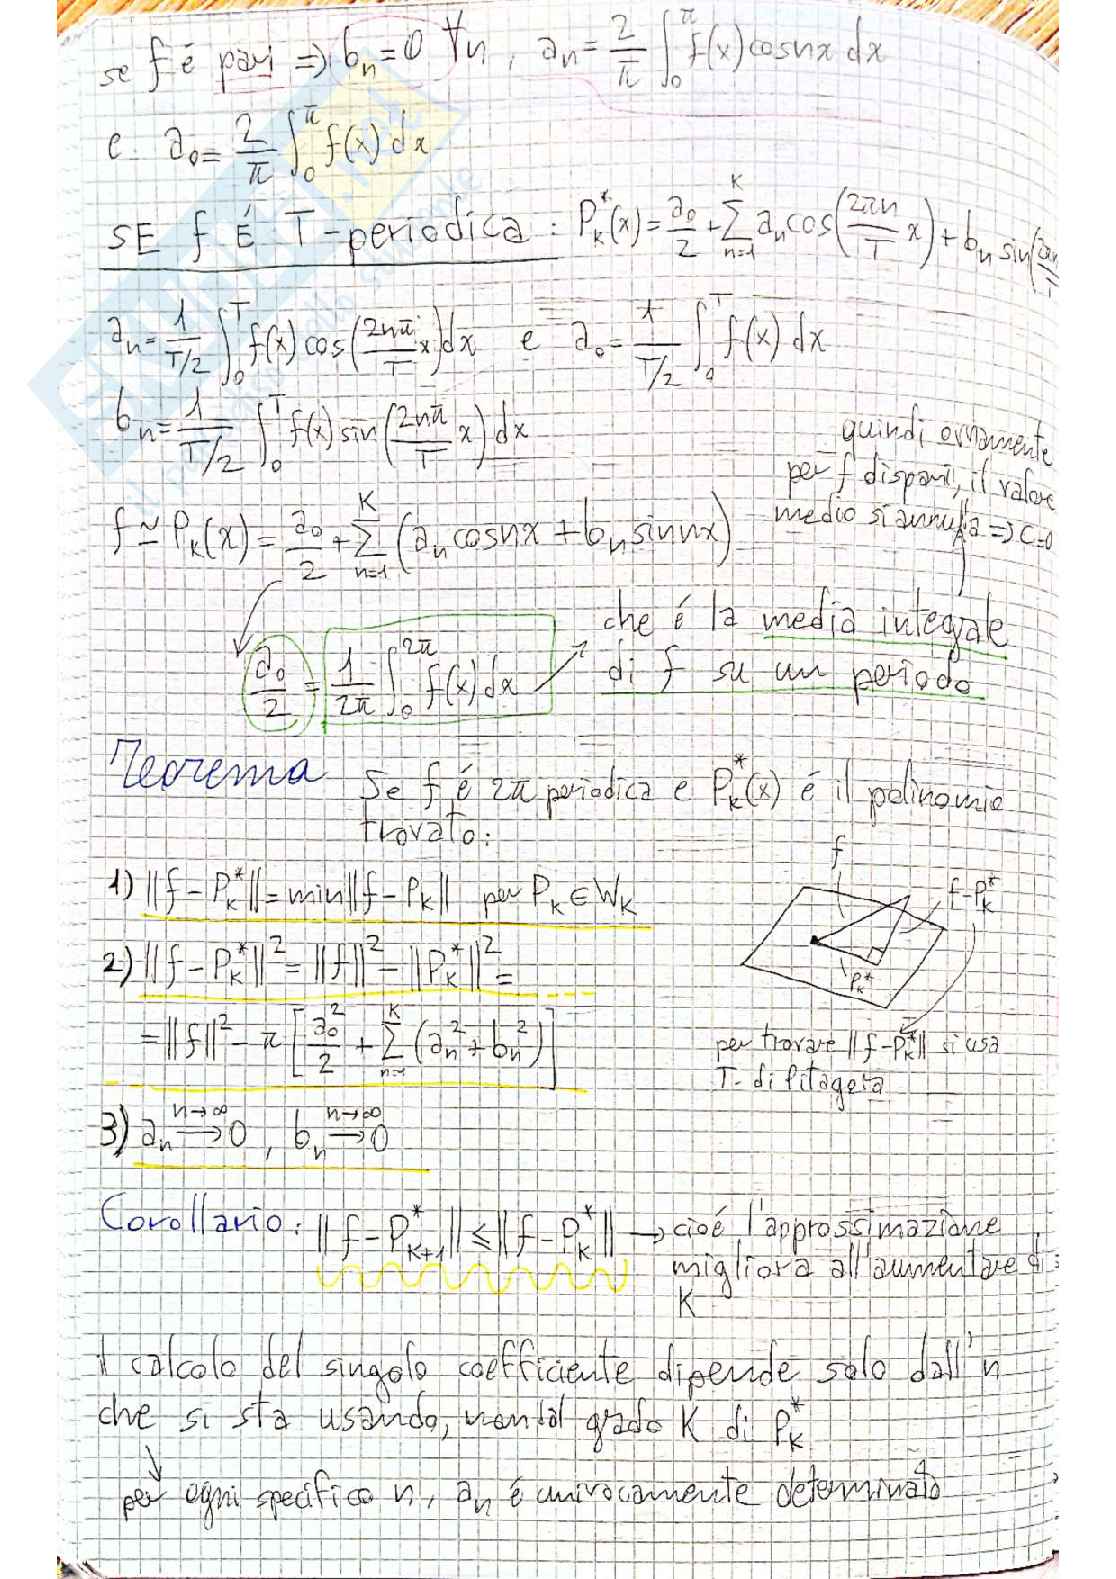 se f é pari => bₙ=0 ∀n, aₙ= 2/π ∫₀^π f(x) cosnx dx
e a₀= 2/π ∫₀^π f(x) dx
SE f É T-periodica: P*ₖ(x)= a₀/2 + Σₙ₌₁^K aₙcos(2πn/T x)+ bₙ sin(2πn/T
aₙ= 1/(T/2) ∫₀^T f(x) cos(2nπ/T x)dx e a₀= 1/(T/2) ∫₀^T f(x) dx
bₙ= 1/(T/2) ∫₀^T f(x) sin(2nπ/T x) dx
quindi ovviamente
per f dispari, il valore
medio si annulla => C=0
f ≃ Pₖ(x)= a₀/2 + Σₙ₌₁^K (aₙcosnx+bₙsinnx)
a₀/2 = 1/2π ∫₀^2π f(x)dx
che é la media integrale
di f su un periodo
Teorema Se f é 2π periodica e P*ₖ(x) é il polinomio
trovato:
1) ||f-P*ₖ||=min||f-Pₖ|| per Pₖ∈Wₖ
2) ||f-P*ₖ||²=||f||²-||P*ₖ||²=
=||f||²-π[a₀²/2 + Σₙ₌₁^K (aₙ²+bₙ²)]
f
f-P*ₖ
P*ₖ
per trovare ||f-P*ₖ|| si usa
T. di Pitagora
3) aₙ →(n→∞) 0, bₙ →(n→∞) 0
Corollario: ||f-P*ₖ₊₁||≤||f-P*ₖ|| → cioé l'approssimazione
migliora all'aumentare di
K
il calcolo del singolo coefficiente dipende solo dall'n
che si sta usando, non dal grado K di P*ₖ
per ogni specifico n, aₙ é univocamente determinato